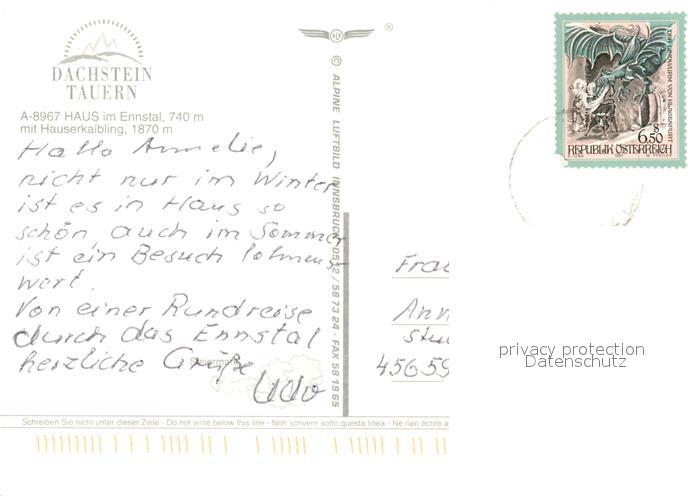 DACHSTEIN
TAUERN
A-8967 HAUS im Ennstal, 740 m
mit Hauserkaibling, 1870 m
Hallo Annelie,
nicht nur im Winter
ist es in Haus so
schön, auch im Sommer
ist ein Besuch lohnens
wert.
Von einer Rundreise
durch das Ennstal
herzliche Grüße
Udo
Steiermark
© ALPINE LUFTBILD INNSBRUCK 0512 / 58 73 24 · FAX 58 18 65
DER LINDWURM VON KLAGENFURT
6.50
REPUBLIK ÖSTERREICH
Frau
Ann
45659
privacy protection
Datenschutz
Schreiben Sie nicht unter dieser Zeile - Do not write below this line - Non scrivere sotto questa linea - Ne rien écrire a